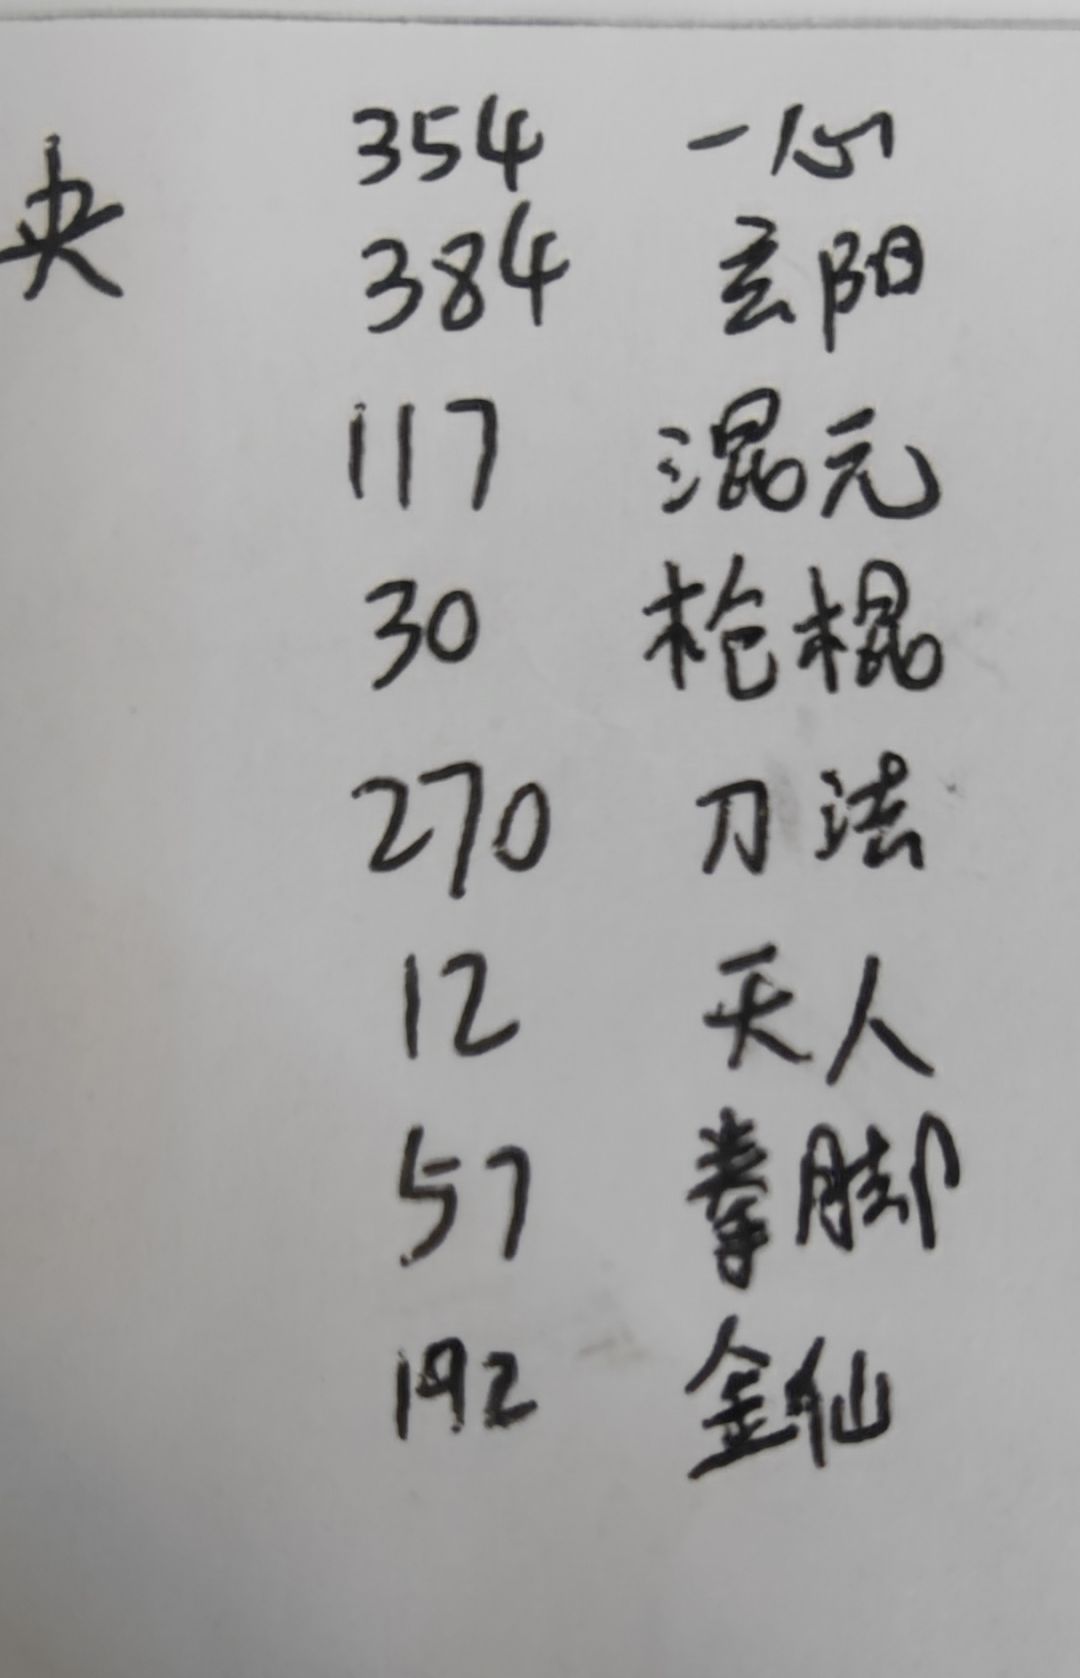 央
354 一心
384 玄阳
117 混元
30 枪棍
270 刀法
12 天人
57 拳脚
192 金仙